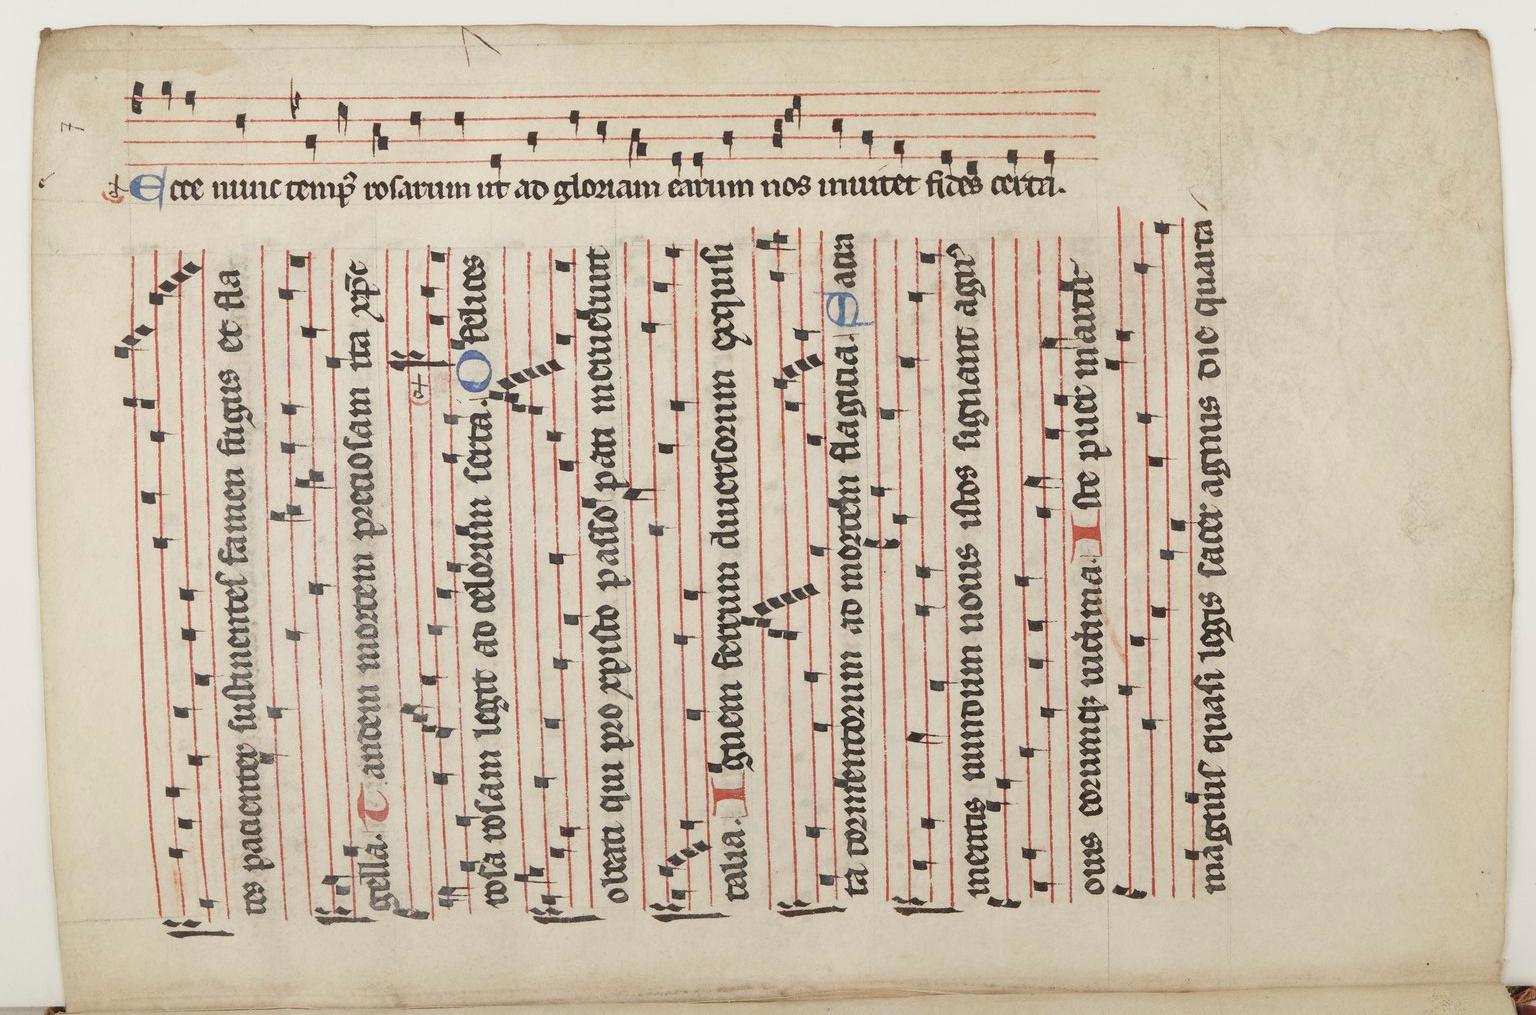 7
a Ecce nunc temp9 rosarum ut ad gloriam earum nos inuitet fides certa.
tes pacienter sustinentes famen frigus et fla
gella. Tandem mortem preciosam ita xpe
rosa rosam legit ad celorum serta. a O felices
obrati qui pro xpisto passo pati meruerunt
talia. Iguem ferrum diuersorum exquisi
ta tormentorum ad mortem flagitia.
mentis mundum nouis istos signant agni
ouis eorumq uictima. Iste puer
magnus quasi legis sacer agnus die quarta